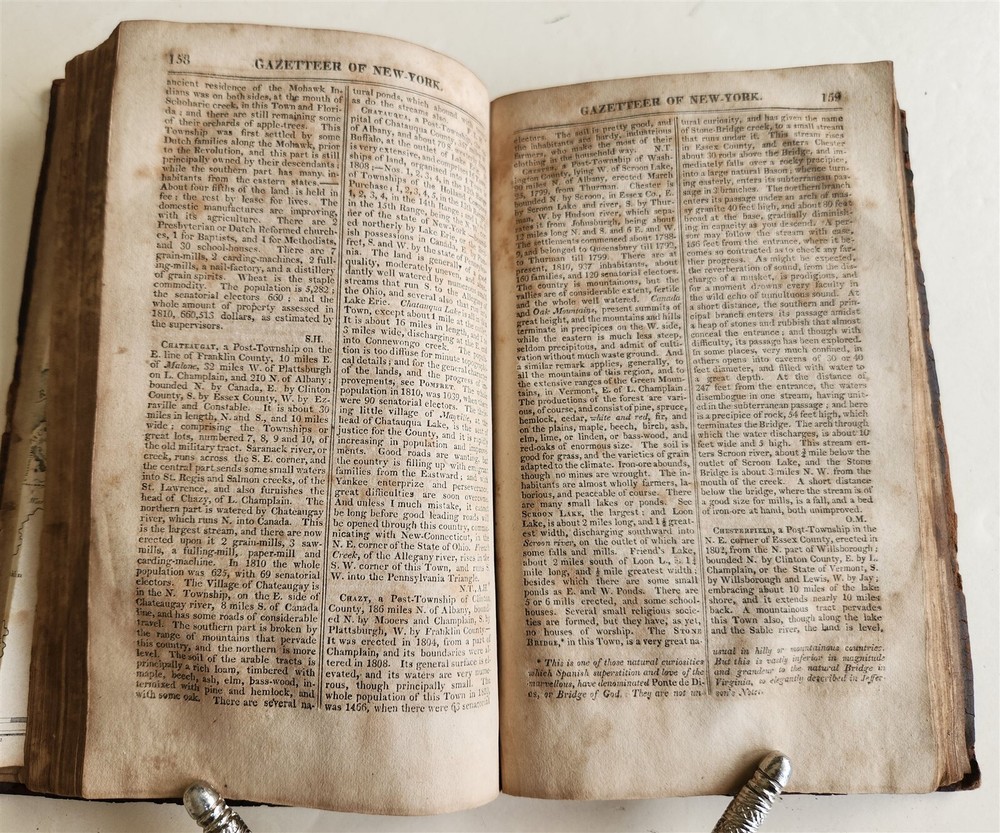 158
GAZETTEER OF NEW-YORK.
ancient residence of the Mohawk In-
dians was on both sides, at the mouth of
Schoharic creek, in this Town and Flori-
da; and there are still remaining some
of their orchards of apple-trees. This
Township was first settled by some
Dutch families along the Mohawk, prior
to the Revolution, and this part is still
principally owned by their descendants
while the southern part has many in-
habitants from the eastern states.—
About four fifths of the land is held in
fee; the rest by lease for lives. The
domestic manufactures are improving,
with its agriculture. There are 2
Presbyterian or Dutch Reformed church-
es, 1 for Baptists, and 1 for Methodists,
and 30 school-houses. There are 7
grain-mills, 2 carding-machines, 2 full-
ing-mills, a nail-factory, and a distillery
of grain spirits. Wheat is the staple
commodity. The population is 5,282;
the senatorial electors 660; and the
whole amount of property assessed in
1810, 660,513 dollars, as estimated by
the supervisors.
S.H.
CHATEAUGAY, a Post-Township on the
E. line of Franklin County, 10 miles E.
of Malone, 32 miles W. of Plattsburgh
on L. Champlain, and 210 N. of Albany;
bounded N. by Canada, E. by Clinton
County, S. by Essex County, W. by Ez-
raville and Constable. It is about 30
miles in length, N. and S., and 10 miles
wide; comprising the Townships or
great lots, numbered 7, 8, 9 and 10, of
the old military tract. Saranack river, or
creek, runs across the S. E. corner, and
the central part sends some small waters
into St. Regis and Salmon creeks, of the
St. Lawrence, and also furnishes the
head of Chazy, of L. Champlain. The
northern part is watered by Chateaugay
river, which runs N. into Canada. This
is the largest stream, and there are now
erected upon it 2 grain-mills, 3 saw-
mills, a fulling-mill, paper-mill and
carding-machine. In 1810 the whole
population was 625, with 69 senatorial
electors. The Village of Chateaugay is
in the N. Township, on the E. side of
Chateaugay river, 8 miles S. of Canada
line, and has some roads of considerable
travel. The southern part is broken by
the range of mountains that pervade
this country, and the northern is more
level. The soil of the arable tracts is
principally a rich loam, timbered with
maple, beech, ash, elm, bass-wood, in-
termixed with pine and hemlock, and
with some oak. There are several na-
tural ponds, which abound
as do the streams also.
CHATAUQUA, a Post-Township
pital of Chatauqua County,
of Albany, and about 70
Buffalo, at the outlet of
is very extensive, and comprises
ships of land, organised
1808:—Nos. 1, 2,
of Townships of the Holland
Purchase; 1, 2, 3, 4, in the 14th Range,
1, 2, 3, 4, in the
in the 15th Range, being
ner of the state of New-York,
ed northerly by Lake Erie,
ish possessions in Canada,
fret, S. and W. by the state of
nia. The land is generally
quality, moderately uneven and
dantly well watered by
streams that run S. to the
the Ohio, and several also
Lake Erie. Chatauqua Lake is
Town, except about 1 mile at the
It is about 16 miles in length,
3 miles wide, discharging at the
into Connewongo creek. The
tion is too diffuse for minute
cal details; and for the general
of the lands, and the progress of
provements, see POMFRET.
population in 1810, was 1039, when
were 90 senatorial electors. The
ing little village of Mayville, at the
head of Chatauqua Lake, is the seat
justice for the County, and it is rapidly
increasing in population and
ments. Good roads are wanting,
the country is filling up with
families from the Eastward; and
Yankee enterprize and perseverance
great difficulties are soon overcome
And unless I much mistake, it
be long before good leading roads will
be opened through this country,
nicating with New-Connecticut,
N. E. corner of the State of Ohio. French
Creek, of the Allegany river, rises in the
S. W. corner of this Town, and runs
W. into the Pennsylvania Triangle.
CHAZY, a Post-Township of Clinton
County, 186 miles N. of Albany, bound-
ed N. by Mooers and Champlain, S. by
Plattsburgh, W. by Franklin County.—
It was erected in 1804, from a part of
Champlain, and its boundaries were al-
tered in 1808. Its general surface is el-
evated, and its waters are very nume-
rous, though principally small. The
whole population of this Town in 1810
was 1466, when there were 63 senatorial
159
GAZETTEER OF NEW-YORK.
electors. The soil is pretty good, and
the inhabitants are hardy, industrious
farmers, who make the most of their
clothing in the household way. N.T.
CHESTER, a Post-Township of Wash-
ington County, lying W. of Scroon Lake,
90 miles N. of Albany, erected March
1799, from Thurman. Chester is
bounded N. by Scroon, in Essex Co., E.
by Scroon Lake and river, S. by Thur-
man, W. by Hudson river, which sepa-
rates it from Johnsburgh, being about
12 miles long N. and S. and 6 E. and W.
The settlements commenced about 1789-
9, and belonged to Queensbury till 1792,
to Thurman till 1799. There are at
present, 1810, 937 inhabitants, about
160 families, and 120 senatorial electors.
The country is mountainous, but the
vallies are of considerable extent, fertile
and the whole well watered. Canada
and Oak Mountains, present summits of
great height, and the mountains and hills
terminate in precipices on the W. side,
while the eastern is much less steep,
seldom precipitous, and admit of culti-
vation without much waste ground. And
a similar remark applies, generally, to
all the mountains of this region, and to
the extensive ranges of the Green Moun-
tains, in Vermont, E. of L. Champlain.
The productions of the forest are vari-
ous, of course, and consist of pine, spruce,
hemlock, cedar, white and red, fir, and
on the plains, maple, beech, birch, ash,
elm, lime, or linden, or bass-wood, and
red-oaks of enormous size. The soil is
good for grass, and the varieties of grain
adapted to the climate. Iron-ore abounds,
though no mines are wrought. The in-
habitants are almost wholly farmers, la-
borious, and peaceable of course. There
are many small lakes or ponds. See
SCROON LAKE, the largest; and Loon
Lake, is about 2 miles long, and 1¼ great-
est width, discharging southward into
Scroon river, on the outlet of which are
some falls and mills. Friend's Lake,
about 2 miles south of Loon L., is 1¼
mile long, and ¼ mile greatest width;
besides which there are some small
ponds as E. and W. Ponds. There are
5 or 6 mills erected, and some school-
houses. Several small religious socie-
ties are formed, but they have, as yet,
no houses of worship. The STONE
BRIDGE,* in this Town, is a very great na-
* This is one of those natural curiosities
which Spanish superstition and love of the
marvellous, have denominated Ponte de Di-
os, or Bridge of God. They are not un-
tural curiosity, and has given the name
of Stone-Bridge creek, to a small stream
that runs under it. This stream rises
in Essex County, and enters Chester
about 30 rods above the Bridge, and im-
mediately falls over a rocky precipice,
into a large natural Bason; whence turn-
ing easterly, enters its subterranean pas-
sage in 2 branches. The northern branch
enters its passage under an arch of mas-
sy granite 40 feet high, and about 80 feet
broad at the base, gradually diminish-
ing in capacity as you descend. A per-
son may follow the stream with ease,
156 feet from the entrance, where it be-
comes so contracted as to check any far-
ther progress. As might be expected,
the reverberation of sound, from the dis-
charge of a musket, is prodigious, and
for a moment drowns every faculty in
the wild echo of tumultuous sound. At
a short distance, the southern and prin-
cipal branch enters its passage amidst
a heap of stones and rubbish that almost
conceal the entrance; and though with
difficulty, its passage has been explored.
In some places, very much confined, in
others opens into caverns of 30 or 40
feet diameter, and filled with water to
a great depth. At the distance of
247 feet from the entrance, the waters
disembogue in one stream, having unit-
ed in the subterranean passage; and here
is a precipice of rock, 54 feet high, which
terminates the Bridge. The arch through
which the water discharges, is about 10
feet wide and 5 high. This stream en-
ters Scroon river, about ¾ mile below the
outlet of Scroon Lake, and the Stone
Bridge is about 3 miles N. W. from the
mouth of the creek. A short distance
below the bridge, where the stream is of
a good size for mills, is a fall, and a bed
of iron-ore at hand, both unimproved.
O.M.
CHESTERFIELD, a Post-Township in the
N. E. corner of Essex County, erected in
1802, from the N. part of Willsborough;
bounded N. by Clinton County, E. by L.
Champlain, or the State of Vermont, S.
by Willsborough and Lewis, W. by Jay;
embracing about 10 miles of the lake
shore, and it extends nearly 10 miles
back. A mountainous tract pervades
this Town also, though along the lake
and the Sable river, the land is level,
usual in hilly or mountainous countries.
But this is vastly inferior in magnitude
and grandeur to the natural Bridge in
Virginia, so elegantly described in Jeffer-
son's Notes.